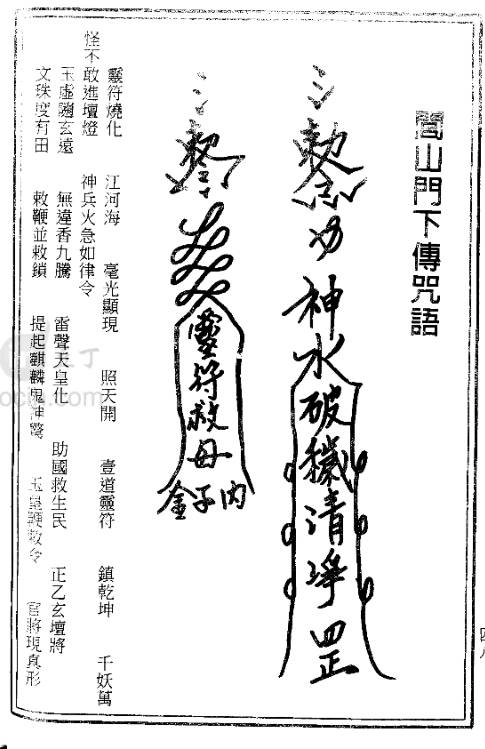 閭山門下傳咒語
敕令
神水破穢清淨罡
敕令
靈符救母
金子內
靈符燒化　江河海　毫光顯現　照天開　壹道靈符　鎮乾坤　千妖萬
怪不敢進壇燈　神兵火急如律令
玉虛隨玄遠　無違香九騰　雷聲天皇化　助國救生民　正乙玄壇將
文珠度有田　敕鞭並敕鎖　提起麒麟鬼神驚　玉皇鞭敕令　官將現真形
四八